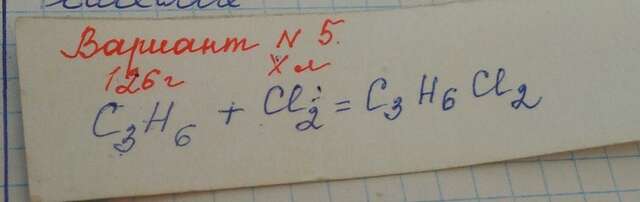 Вариант N 5.
126г Х л
C₃H₆ + Cl₂ = C₃H₆Cl₂